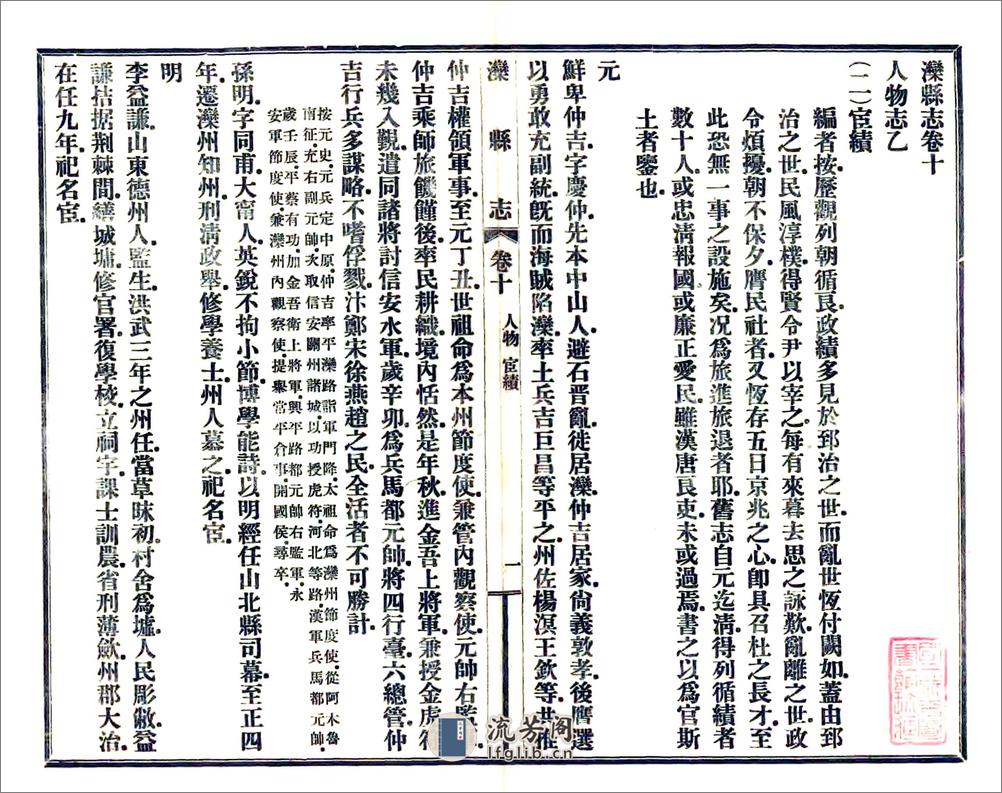 灤縣志卷十
人物志乙
(二)宦績
編者按歷觀列朝循良政績多見於郅治之世而亂世恆付闕如蓋由郅
治之世民風淳樸得賢令尹以宰之每有來暮去思之詠歎亂離之世政
令煩擾朝不保夕膺民社者又恆存五日京兆之心卽具召杜之長才至
此恐無一事之設施矣况爲旅進旅退者耶舊志自元迄淸得列循績者
數十人或忠淸報國或廉正愛民雖漢唐良吏未或過焉書之以爲官斯
土者鑒也
元
鮮卑仲吉字慶仲先本中山人避石晋亂徙居灤仲吉居家尙義敦孝後膺選
以勇敢充副統旣而海賊陷灤率土兵吉巨昌等平之州佐楊溟王欽等
灤縣志 卷十 人物 宦績 一
仲吉權領軍事至元丁丑世祖命爲本州節度使兼管內觀察使元帥右監
仲吉乘師旅饑饉後率民耕織境內恬然是年秋進金吾上將軍兼授金虎符
未幾入覲遣同諸將討信安水軍歲辛卯爲兵馬都元帥將四行臺六總管仲
吉行兵多謀略不嗜俘戮汴鄭宋徐燕趙之民全活者不可勝計
按元史元兵定中原仲吉率平灤路詣軍門降太祖命爲灤州節度使從阿木魯
南征充右副元帥攻取信安關州諸城以功授虎符河北等路漢軍兵馬都元帥
歲壬辰平蔡有功加金吾衛上將軍興平路都元帥右監軍永
安軍節度使兼灤州內觀察使提舉常平倉事開國侯尋卒
孫明字同甫大甯人英銳不拘小節博學能詩以明經任山北縣司幕至正四
年遷灤州知州刑淸政舉修學養士州人慕之祀名宦
明
李益謙山東德州人監生洪武三年之州任當草昧初村舍爲墟人民彫敝益
謙拮据荆棘間繕城墉修官署復學校立祠宇課士訓農省刑薄歛州郡大治
在任九年祀名宦
流芳阁
lfglib.cn